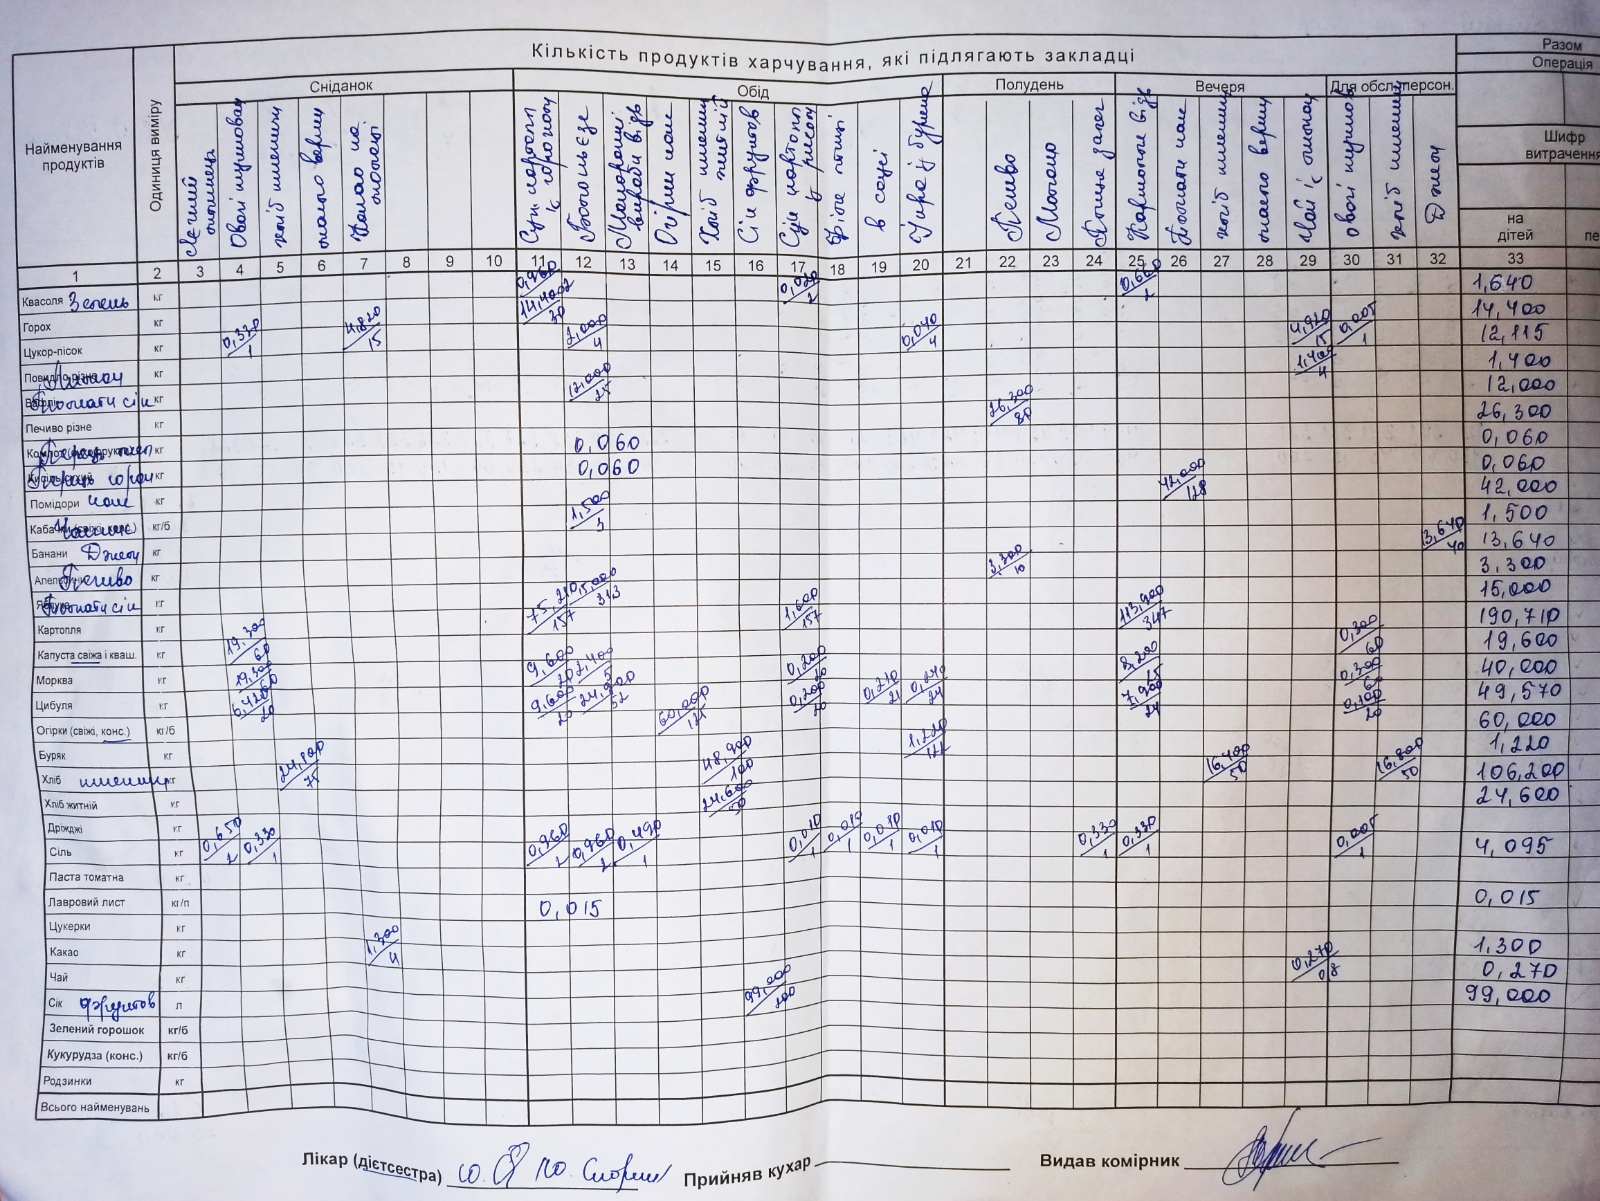 Кількість продуктів харчування, які підлягають закладці
Разом
Операція
Найменування продуктів
Одиниця виміру
Сніданок
Обід
Полудень
Вечеря
Для обсл. персон.
Шифр витрачення
на дітей
хліб пшенич
Какао на
Суп
Богатольєзе
Макаронні вироби відв
Огірки
Хліб пшенич житній
Сік фруктов
Суп картопл з рисом
в соусі
Печиво
Молоко
Картопля відв
хліб пшенич
масло верш
Чай з лимоном
хліб пшенич
Джем
1 2 3 4 5 6 7 8 9 10 11 12 13 14 15 16 17 18 19 20 21 22 23 24 25 26 27 28 29 30 31 32 33
Квасоля Зелень кг 0,960/2 0,020/2 0,660/2 1,640
Горох кг 14,400/30 14,400
Цукор-пісок кг 0,330/1 4,820/15 2,000/4 0,040/4 4,920/15 0,005/1 12,115
Повидло різне Лимон кг 1,400/4 1,400
Томати сік кг 12,000/25 12,000
Печиво різне кг 26,300/80 26,300
Перець кг 0,060 0,060
Перець горош кг 0,060 0,060
Помідори кг 42,000/128 42,000
Кабачки (свіжі, конс.) Часник кг/б 1,500/3 1,500
Банани Джем кг 13,640/40 13,640
Апельсини Печиво кг 3,300/10 3,300
Яблука Томати сік кг 15,000/313 15,000
Картопля кг 75,210/157 1,600/157 113,900/347 190,710
Капуста свіжа і кваш. кг 19,300/60 0,300/60 19,600
Морква кг 19,300/60 9,600/20 2,400/5 0,200/20 8,200/25 0,300/60 40,000
Цибуля кг 6,420/20 9,600/20 24,900/52 0,200/20 0,210/21 0,240/24 7,900/24 0,100/20 49,570
Огірки (свіжі, конс.) кг/б 60,000/121 60,000
Буряк кг 1,220/122 1,220
Хліб пшенич кг 24,100/75 48,900/100 16,400/50 16,800/50 106,200
Хліб житній кг 24,600/50 24,600
Дрожджі кг
Сіль кг 0,650/2 0,330/1 0,960/2 0,960/2 0,490/1 0,010/1 0,010/1 0,010/1 0,010/1 0,330/1 0,330/1 0,005/1 4,095
Паста томатна кг
Лавровий лист кг/п 0,015 0,015
Цукерки кг
Какао кг 1,300/4 1,300
Чай кг 0,270/0,8 0,270
Сік фруктов л 99,000/200 99,000
Зелений горошок кг/б
Кукурудза (конс.) кг/б
Родзинки кг
Всього найменувань
Лікар (дієтсестра) Прийняв кухар Видав комірник